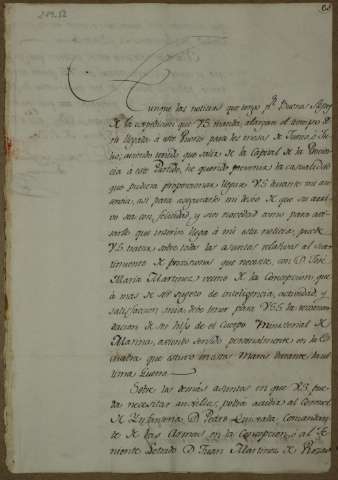 Aunque las noticias que tengo de Buenos Ayres
de la expedicion que VS manda, alargan el tiempo de
su llegada à este Puerto para los meses de Junio, ò Ju-
lio; teniendo que salir de la Capital de la Provin-
cia à este Partido, he querido prevenir la casualidad
que pudiera proporcionar llegara VS durante mi au-
sencia, asi para asegurarle mi deseo de que su arri-
vo sea con felicidad, y sin novedad como para avi-
sarle que interin llega à mi esta noticia, puede
VS tratar sobre todos los asuntos relativos al surti-
miento de provisiones que necesite, con D. Jose
Maria Martinez vecino de la Concepcion que
à mas de ser sugeto de inteligencia, actividad, y
satisfaccion mia, debe tener para VSS la recomen-
dacion de ser hijo de el Cuerpo Ministerial de
Marina, haviendo servido personalmente en la Es-
quadra que estuvo en estos Mares durante la ul-
tima Guerra.
Sobre los demas asuntos en que VS pue-
da necesitar auxilios, podrà acudir al Coronel
de Infanteria D. Pedro Quixada Comandan-
te de las Armas en la Concepcion, ò al The-
niente Letrado D. Juan Martinez de Rozas